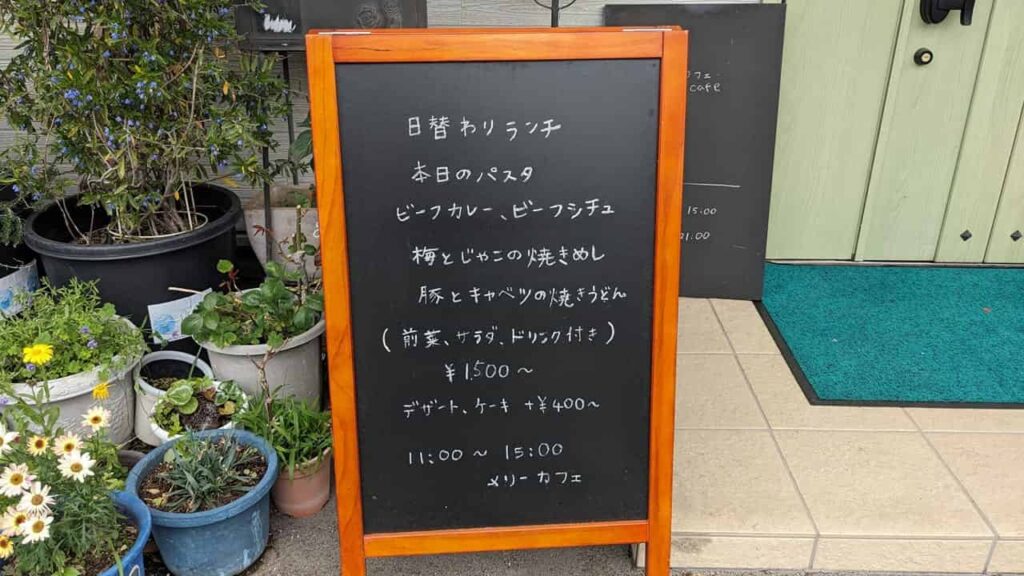 日替わりランチ
本日のパスタ
ビーフカレー、ビーフシチュ
梅とじゃこの焼きめし
豚とキャベツの焼きうどん
(前菜、サラダ、ドリンク付き)
¥1,500〜
デザート、ケーキ +¥400〜
11:00〜15:00
メリーカフェ
フェ
CAFE
15:00
21.00